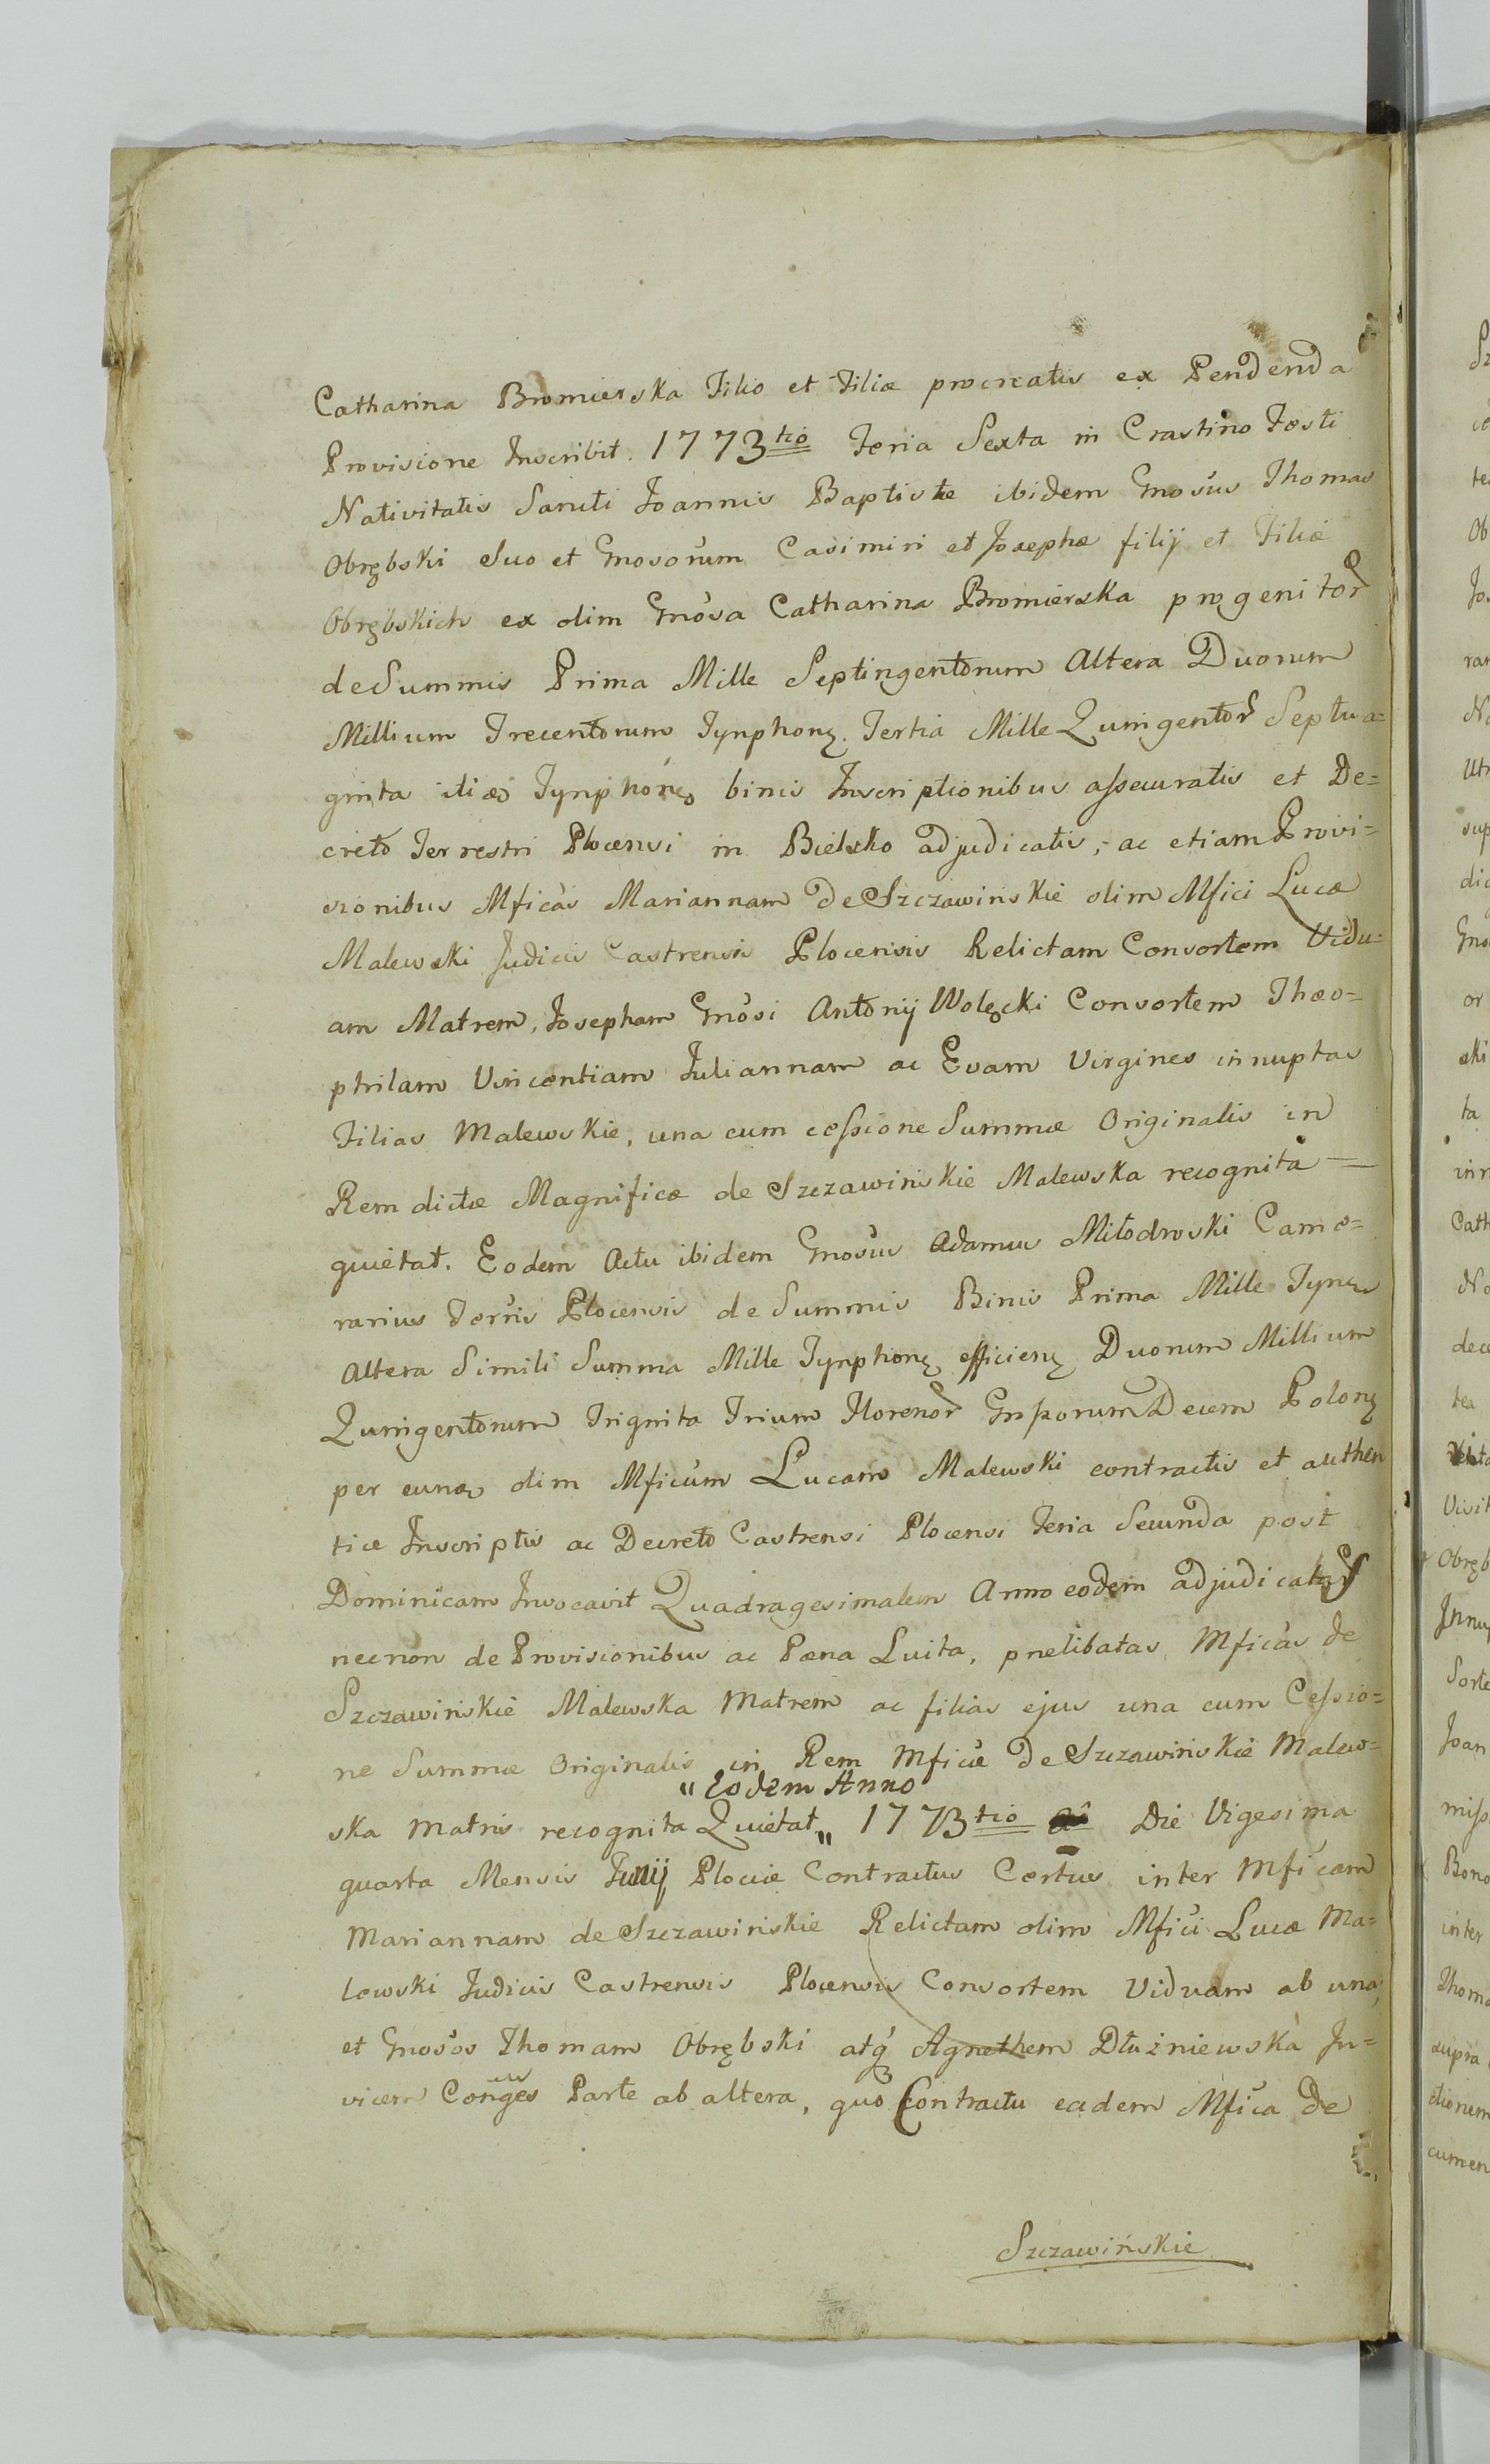 Catharina Bromierska Filio et Filiæ procreatis ex Pendenda
Provisione Inscribit. 1773tio Feria Sexta in Crastino Festi
Nativitatis Sancti Joannis Baptistæ ibidem Gnosus Thomas
Obrębski Suo et Gnosorum Casimiri et Josephæ filij et Filiæ
Obrębskich ex olim Gnosa Catharina Bromierska progenitor
de Summis Prima Mille Septingentorum Altera Duorum
Millium Trecentorum Tynphonȩ. Tertia Mille Quingentor Septua=
ginta Tynphonȩ binis Inscriptionibus assecuratis et De=
creto Terrestri Plocensi in Bielsko adjudicatis, ac etiam Provi=
sionibus Mficas Mariannam de Szczawinskie olim Mfici Lucæ
Malewski Judicis Castrensis Plocensis Relictam Consortem Vidu=
am Matrem, Josepham Gnosi Antonij Wolęcki Consortem Theo=
philam Vincentiam Juliannam ac Evam Virgines innuptas
Filias Malewskie, una cum cessione Summæ Originalis in
Rem dictæ Magnificæ de Szczawińskie Malewska recognita —
quietat. Eodem Actu ibidem Gnosus Adamus Miłodroski Came=
rarius Terris Plocensis de Summis Binis Prima Mille Tynȩ
altera Simili Summa Mille Tynphonȩ efficienȩ Duorum Millium
Quingentorum Triginta Trium Florenor Grssorum Decem Polonȩ
per eunȩ olim Mficum Lucam Malewski contractis et authen
tice Inscriptis ac Decreto Castrensi Plocensi Feria Secunda post
Dominicam Invocavit Quadragesimalem Anno eodem adjudicatis
necnon de Provisionibus ac Pæna Luita, prælibatas Mficas de
Szczawińskie Malewska Matrem ac filias ejus una cum Cessio=
ne Summæ Originalis in Rem Mficæ de Szczawińskie Malew=
" Eodem Anno
ska Matris recognita Quietat „ 1773tio Die Vigesima
quarta Mensis Junij Plociæ Contractus Certus inter Mficam
Mariannam de Szczawińskie Relictam olim Mfici Lucæ Ma=
lewski Judicis Castrensis Plocensis Consortem Viduam ab una,
et Gnosos Thomam Obrębski atq Agnethem Dłużniewska In=
vicem Conges Parte ab altera, quo Contractu eadem Mfica de
Szczawińskie